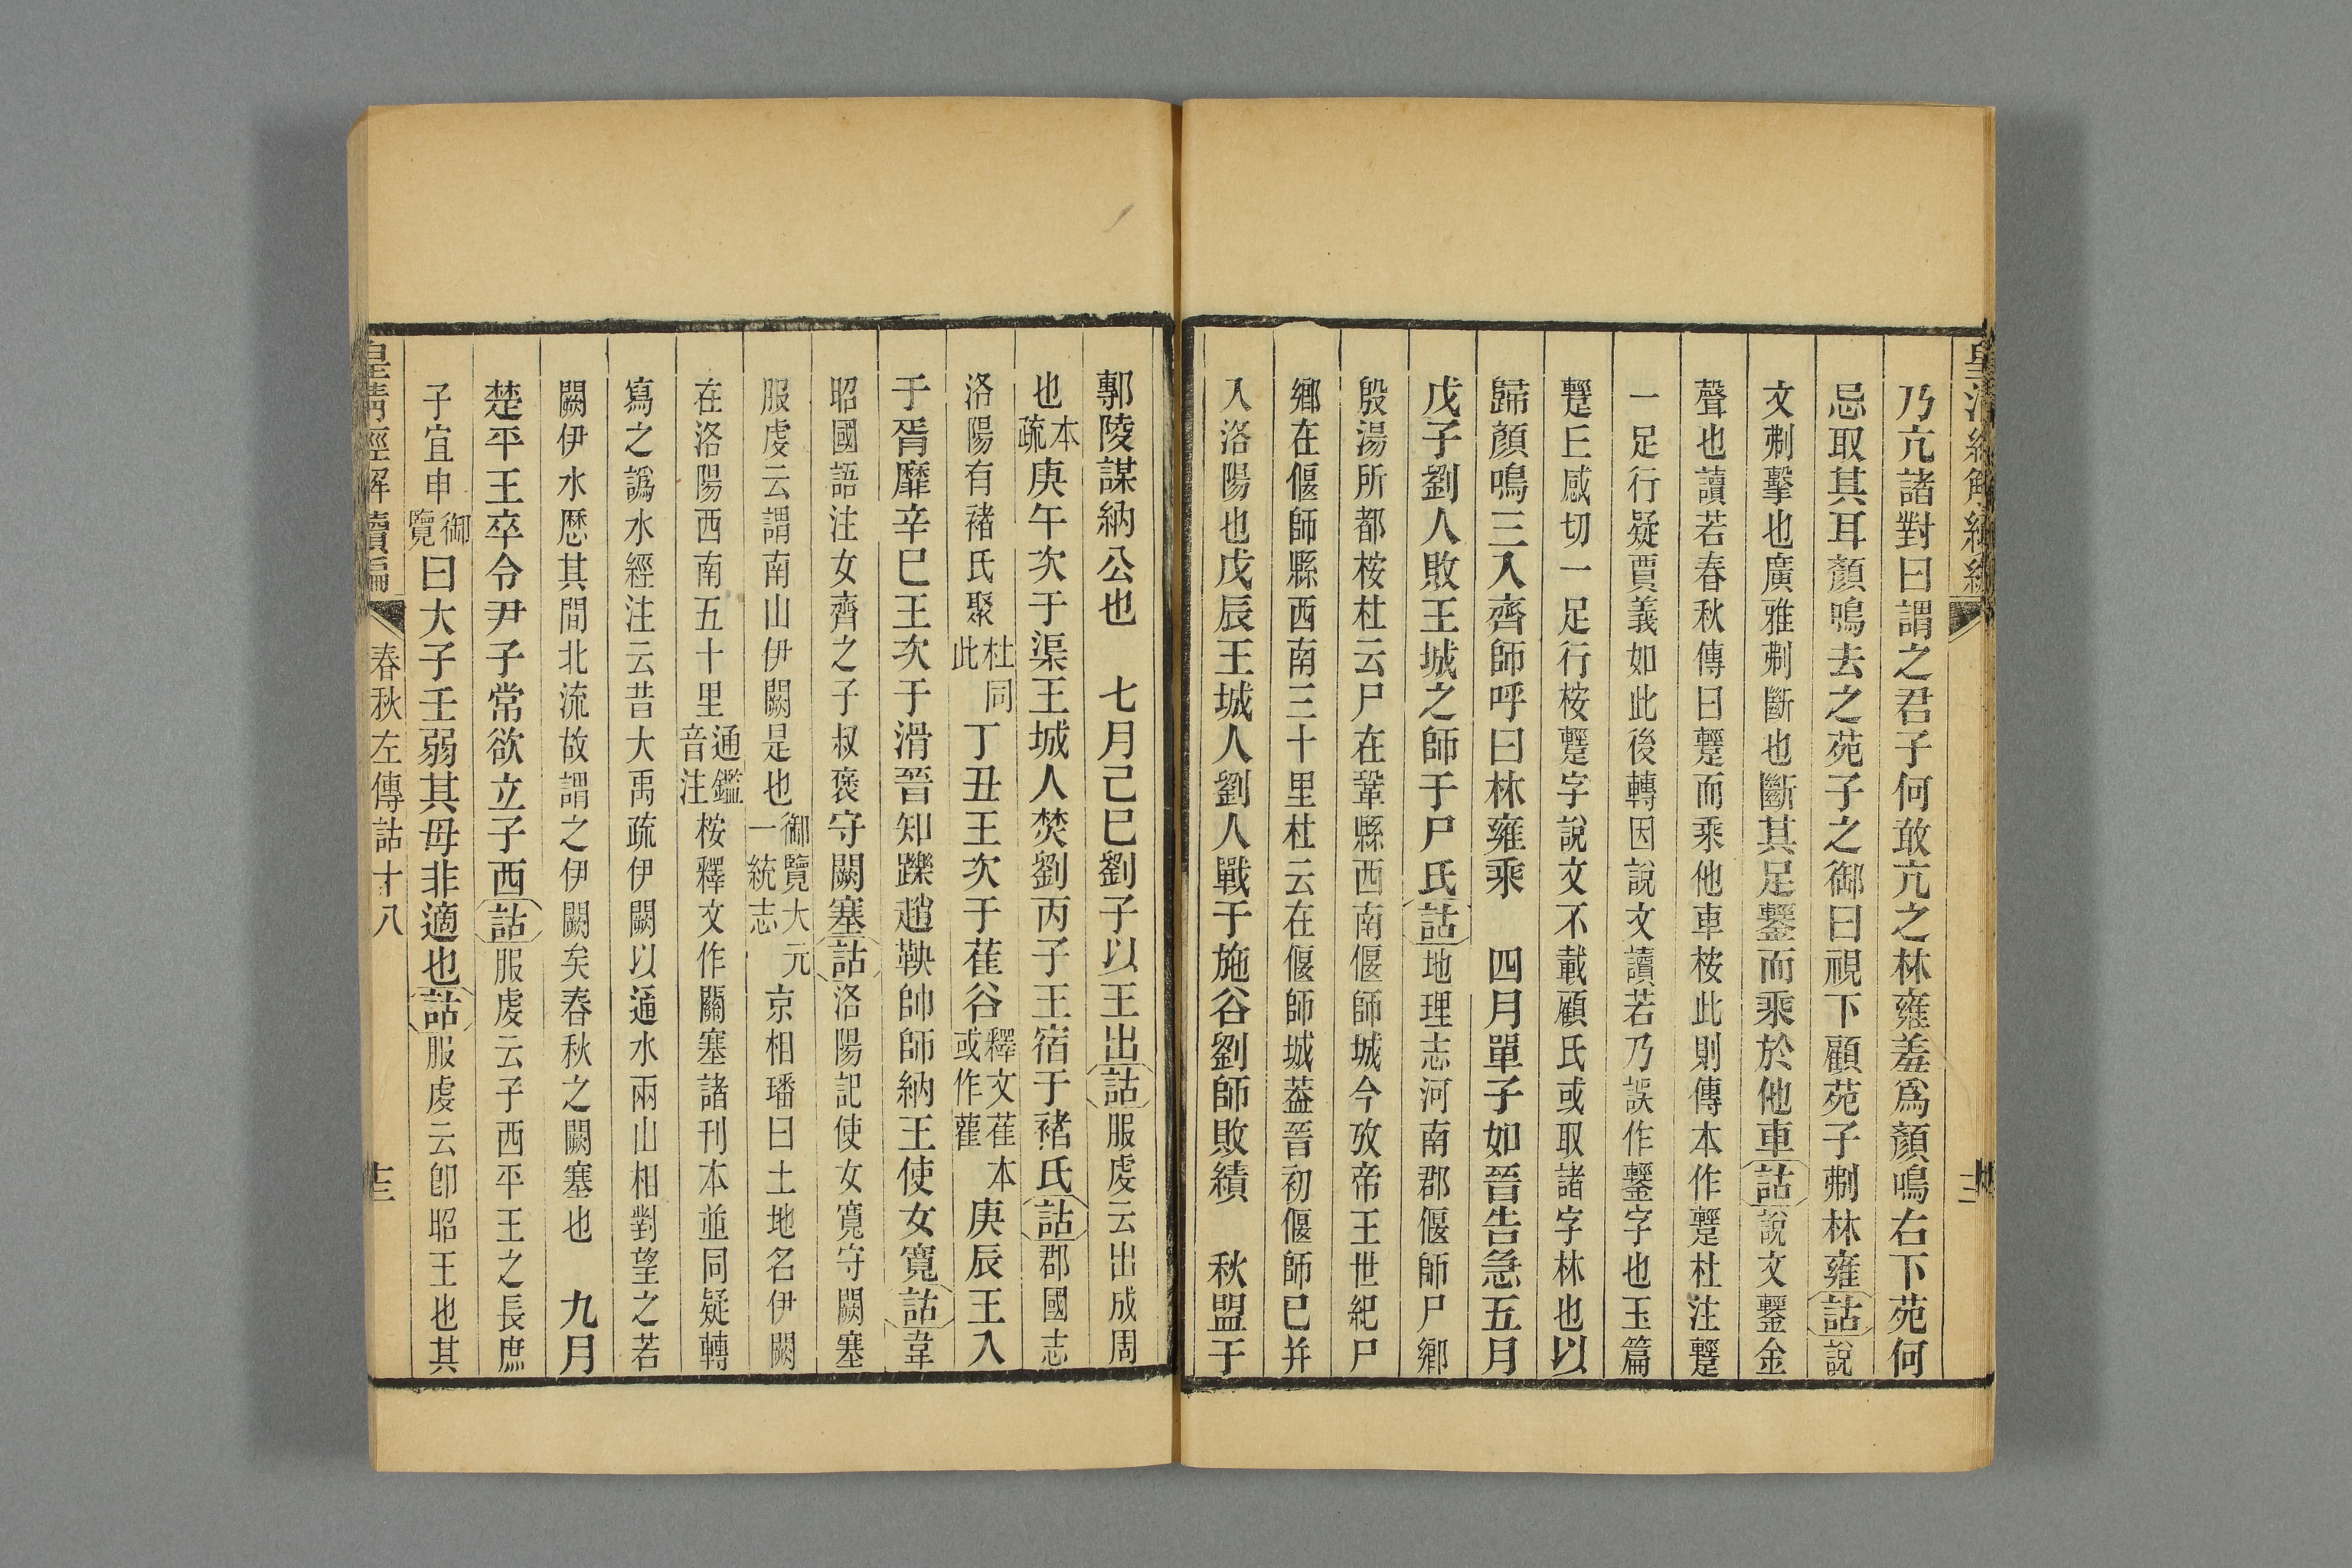 乃亢諸對曰謂之君子何敢亢之林雍羞爲顏鳴右下苑何
忌取其耳顏鳴去之苑子之御曰視下顧苑子刜林雍詁說
文刜擊也廣雅刜斷也斷其足鑋而乘於他車詁說文鑋金
聲也讀若春秋傳曰躗而乘他車桉此則傳本作躗杜注躗
一足行疑賈義如此後轉因說文讀若乃誤作鑋字也玉篇
躗丘感切一足行桉躗字說文不載顧氏或取諸字林也以
歸顏鳴三入齊師呼曰林雍乘　四月單子如晉告急五月
戊子劉人敗王城之師于尸氏詁地理志河南郡偃師尸鄉
殷湯所都桉杜云尸在鞏縣西南偃師城今攷帝王世紀尸
鄉在偃師縣西南三十里杜云在偃師城葢晉初偃師已并
入洛陽也戊辰王城人劉人戰于施谷劉師敗績　秋盟于
鄟陵謀納公也　七月己巳劉子以王出詁服虔云出成周
也本疏庚午次于渠王城人焚劉丙子王宿于褚氏詁郡國志
洛陽有褚氏聚杜同此丁丑王次于萑谷釋文萑本或作雚庚辰王入
于胥靡辛巳王次于滑晉知躒趙鞅帥師納王使女寬詁韋
昭國語注女齊之子叔褒守闕塞詁洛陽記使女寬守闕塞
服虔云謂南山伊闕是也御覽大元一統志京相璠曰土地名伊闕
在洛陽西南五十里通鑑音注桉釋文作關塞諸刊本並同疑轉
寫之譌水經注云昔大禹疏伊闕以通水兩山相對望之若
闕伊水歷其間北流故謂之伊闕矣春秋之闕塞也　九月
楚平王卒令尹子常欲立子西詁服虔云子西平王之長庶
子宜申御覽曰大子壬弱其母非適也詁服虔云卽昭王也其
皇清經解續編　春秋左傳詁十八　十三